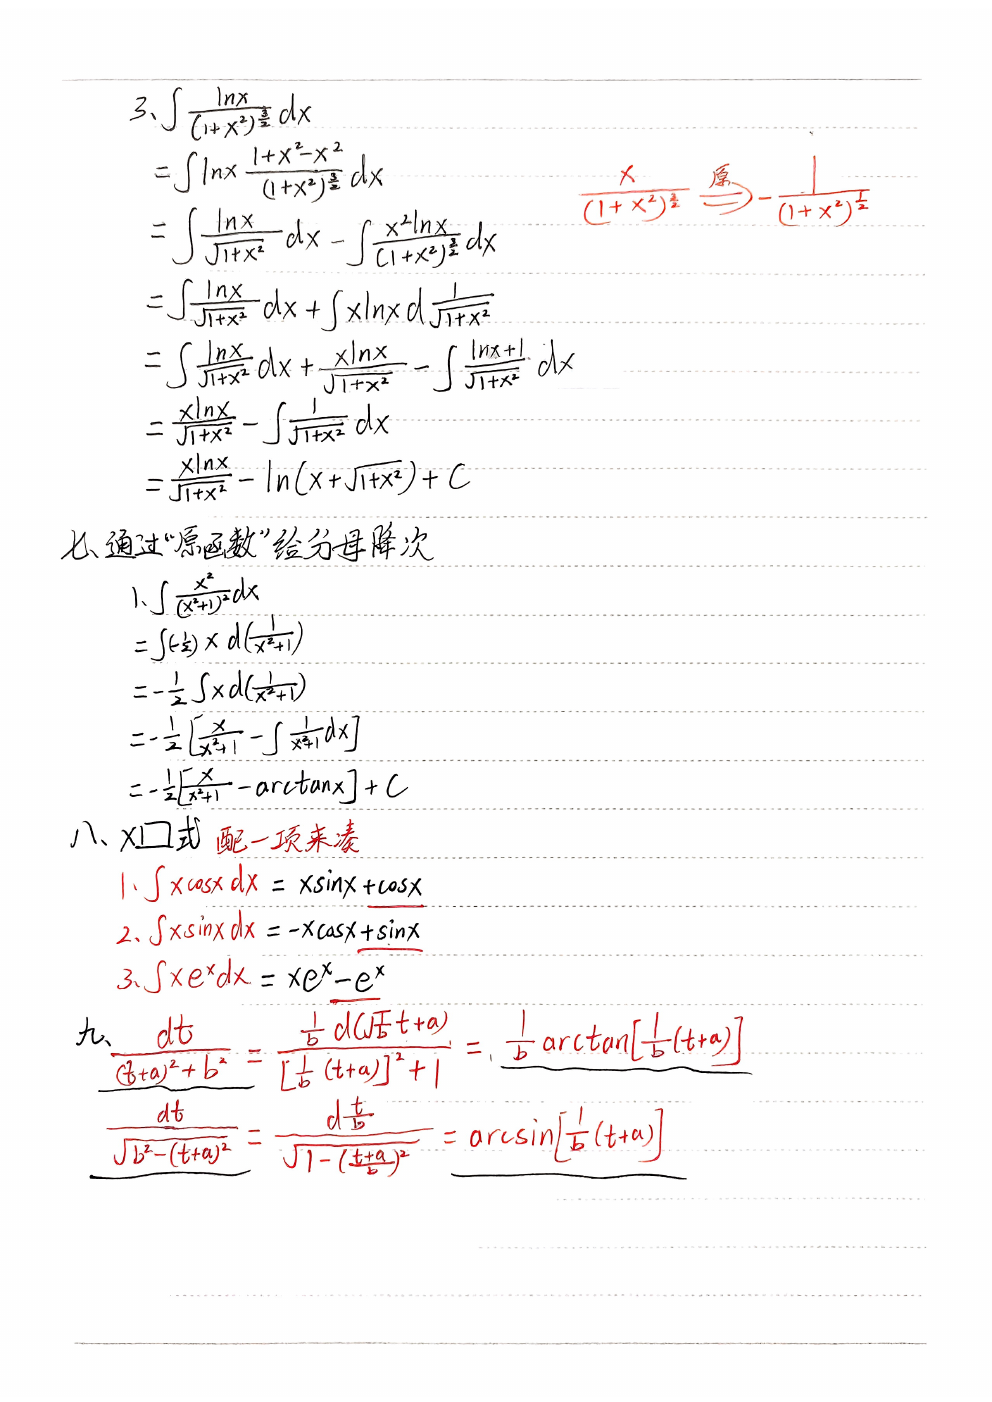 3、∫ lnx/(1+x²)^(3/2) dx
= ∫ lnx (1+x²-x²)/(1+x²)^(3/2) dx
x/(1+x²)^(3/2) ⟹(原) -1/(1+x²)^(1/2)
= ∫ lnx/√(1+x²) dx - ∫ x²lnx/(1+x²)^(3/2) dx
= ∫ lnx/√(1+x²) dx + ∫ xlnx d 1/√(1+x²)
= ∫ lnx/√(1+x²) dx + xlnx/√(1+x²) - ∫ (lnx+1)/√(1+x²) dx
= xlnx/√(1+x²) - ∫ 1/√(1+x²) dx
= xlnx/√(1+x²) - ln(x+√(1+x²)) + C
七、通过"原函数"给分母降次
1、∫ x²/(x²+1)² dx
= ∫(-1/2) x d(1/(x²+1))
= -1/2 ∫ x d(1/(x²+1))
= -1/2 [x/(x²+1) - ∫ 1/(x²+1) dx]
= -1/2 [x/(x²+1) - arctanx] + C
八、x囗式 配一项来凑
1、∫xcosx dx = xsinx+cosx
2、∫xsinx dx = -xcosx+sinx
3、∫xe^x dx = xe^x-e^x
九、dt/((t+a)²+b²) = (1/b) d(1/b t+a)/([1/b (t+a)]²+1) = 1/b arctan[1/b (t+a)]
dt/√(b²-(t+a)²) = d(t/b)/√(1-((t+a)/b)²) = arcsin[1/b (t+a)]